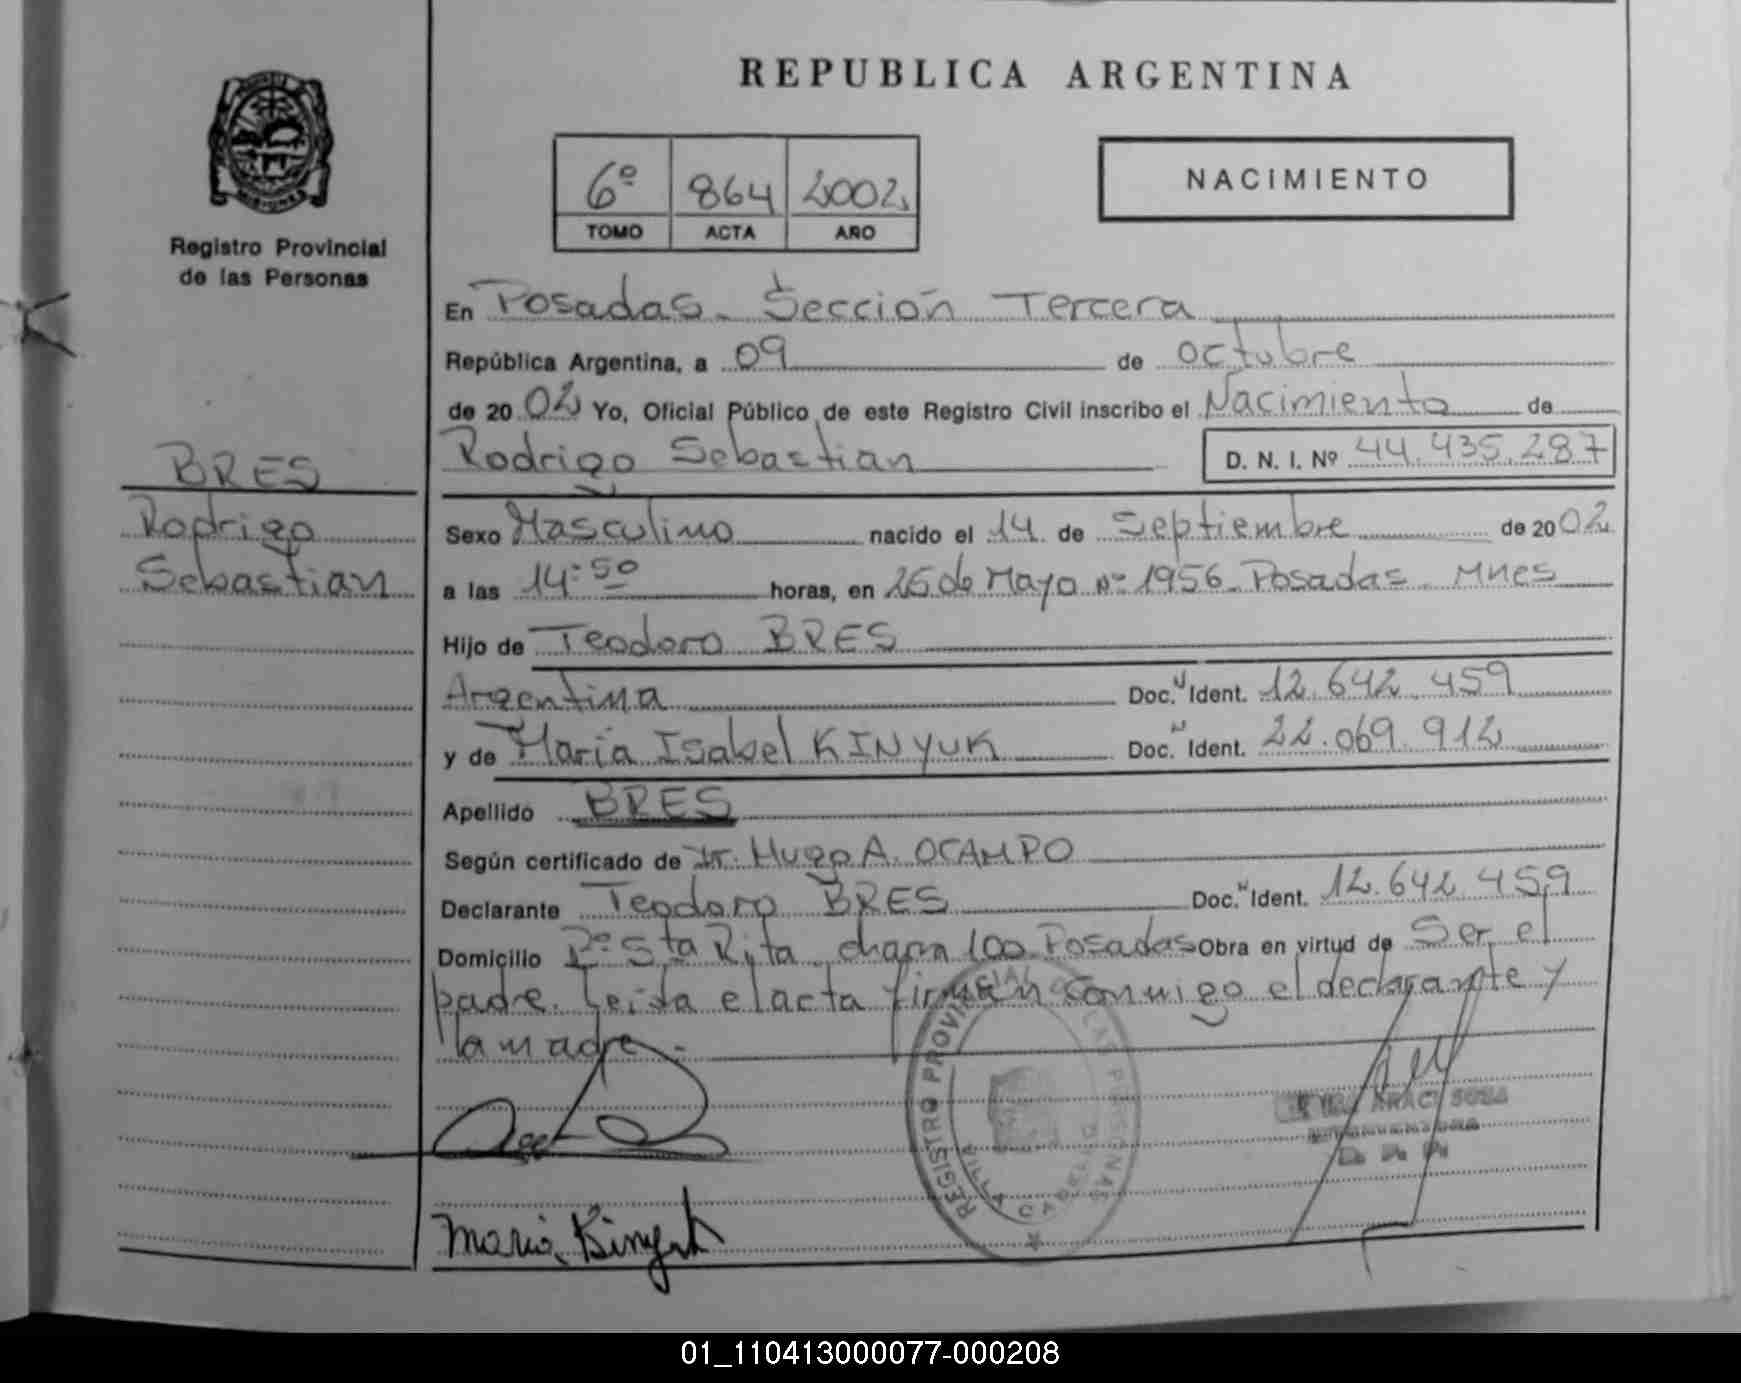 REPUBLICA ARGENTINA
6º 864 2002
TOMO ACTA AÑO
NACIMIENTO
MISIONES
Registro Provincial
de las Personas
BRES
Rodrigo
Sebastian
En Posadas - Sección Tercera
República Argentina, a 09 de octubre
de 2002 Yo, Oficial Público de este Registro Civil inscribo el Nacimiento de
Rodrigo Sebastian D. N. I. Nº 44.435.287
Sexo Masculino nacido el 14 de Septiembre de 2002
a las 14:50 horas, en 25 de Mayo Nº 1956 - Posadas - Mnes
Hijo de Teodoro BRES
Argentina Doc. Ident. 12.642.459
y de María Isabel KINYUK Doc. Ident. 22.069.912
Apellido BRES
Según certificado de Dr. Hugo A. OCAMPO
Declarante Teodoro BRES Doc. Ident. 12.642.459
Domicilio Bº Sta Rita chacra 100 Posadas Obra en virtud de Ser el
padre. Leida el acta firman conmigo el declarante y
la madre.-
REGISTRO PROVINCIAL DE LAS PERSONAS
ARACI SOSA
Maria Kinyuk
01_110413000077-000208